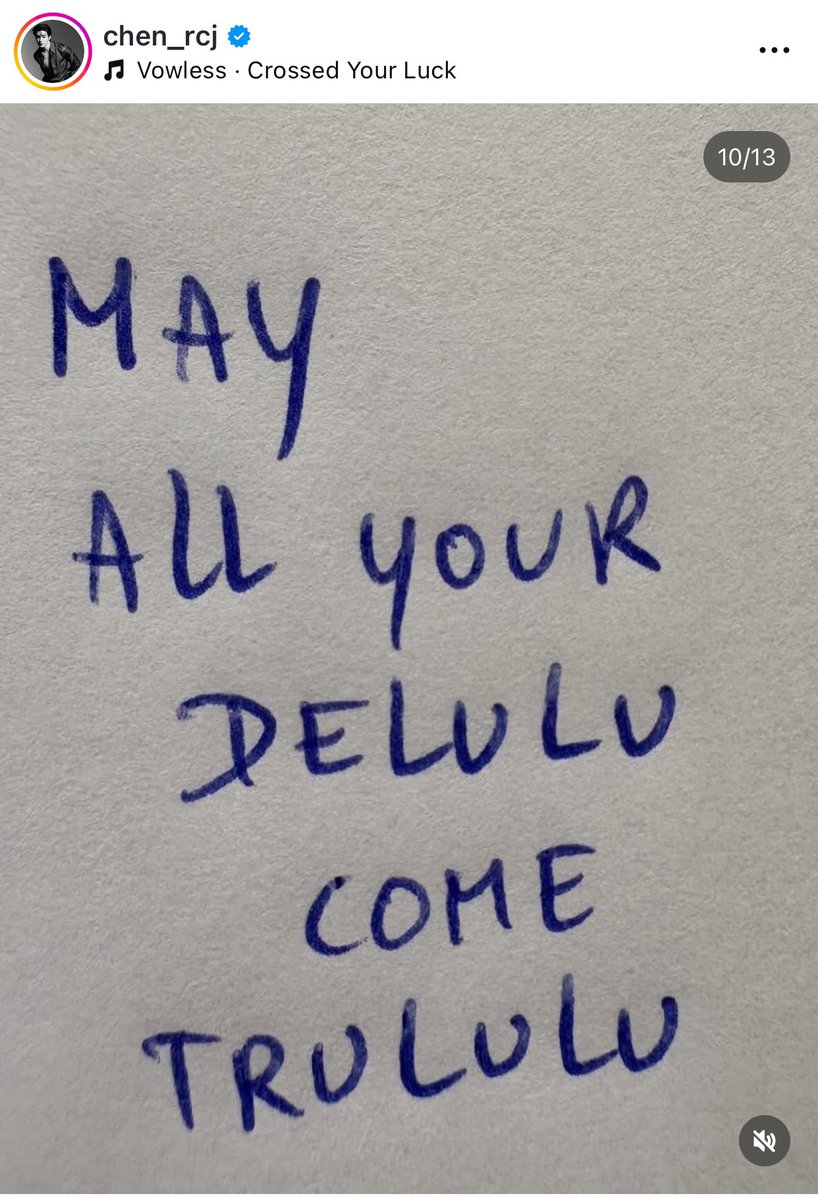 chen_rcj
Vowless · Crossed Your Luck
10/13
MAY
ALL YOUR
DELULU
COME
TRULULU